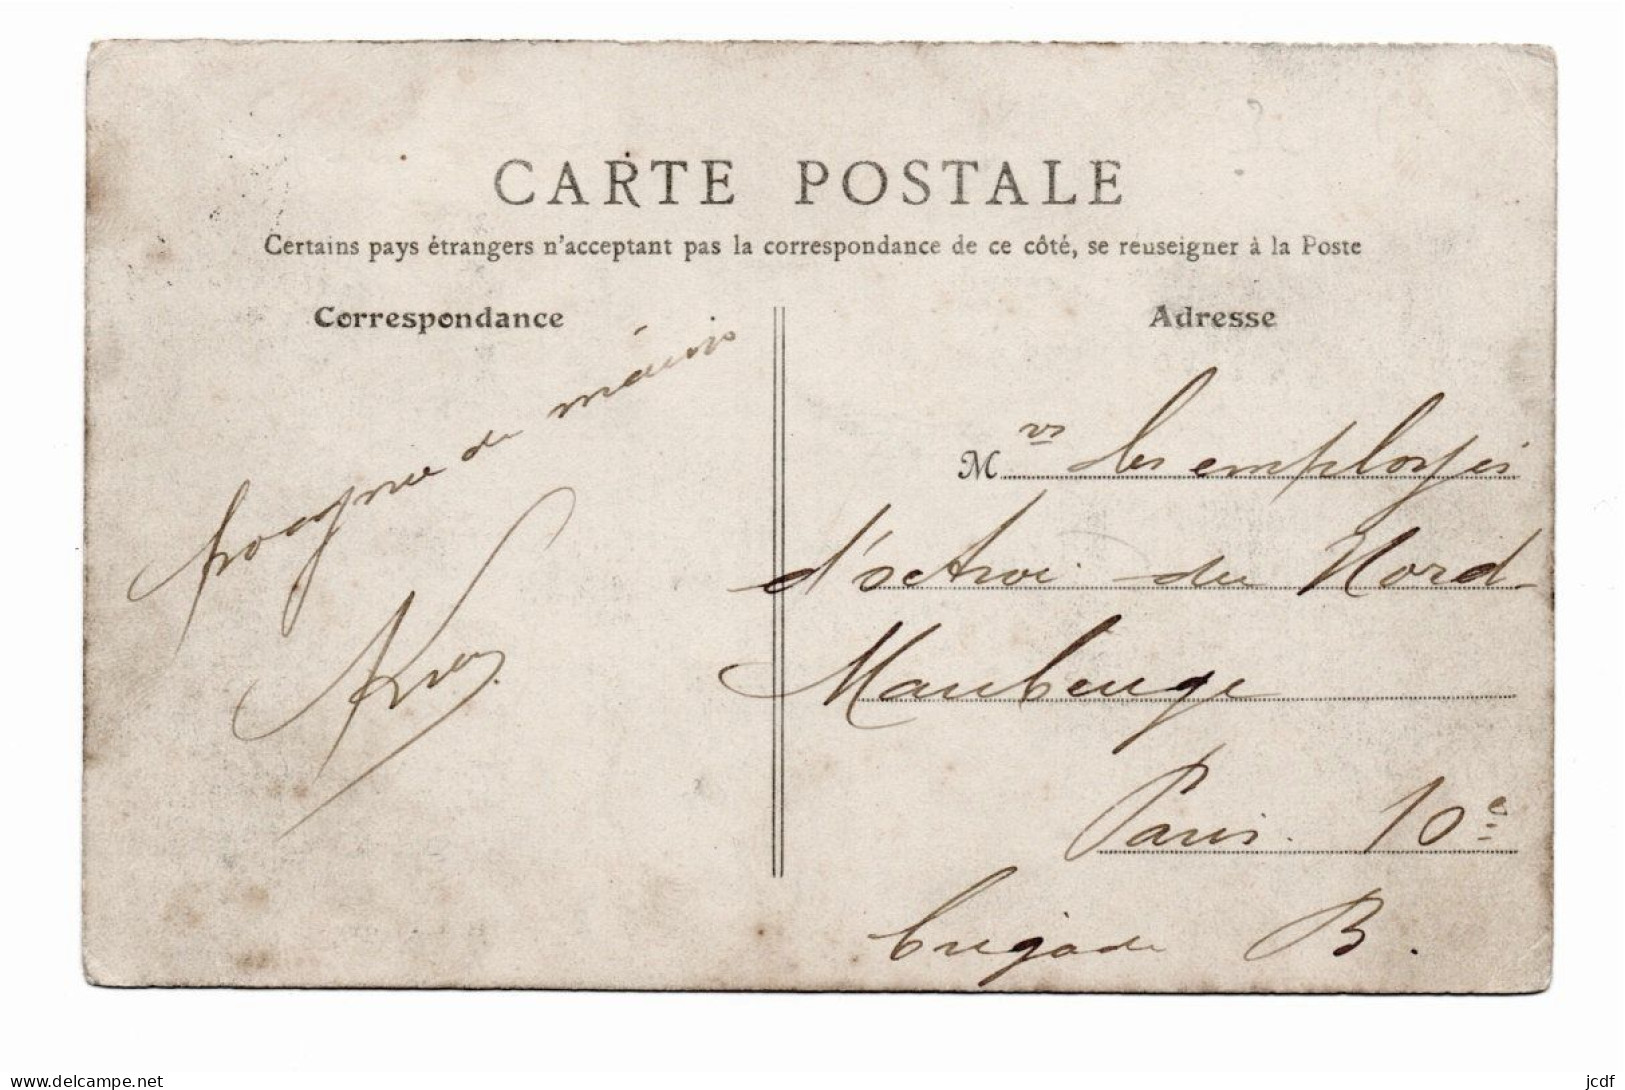 CARTE POSTALE
Certains pays étrangers n'acceptant pas la correspondance de ce côté, se reuseigner à la Poste
Correspondance
Adresse
de
Mrs les employés
d'octroi du Nord
Maubeuge
Paris. 10e
brigade B.
www.delcampe.net
jcdf